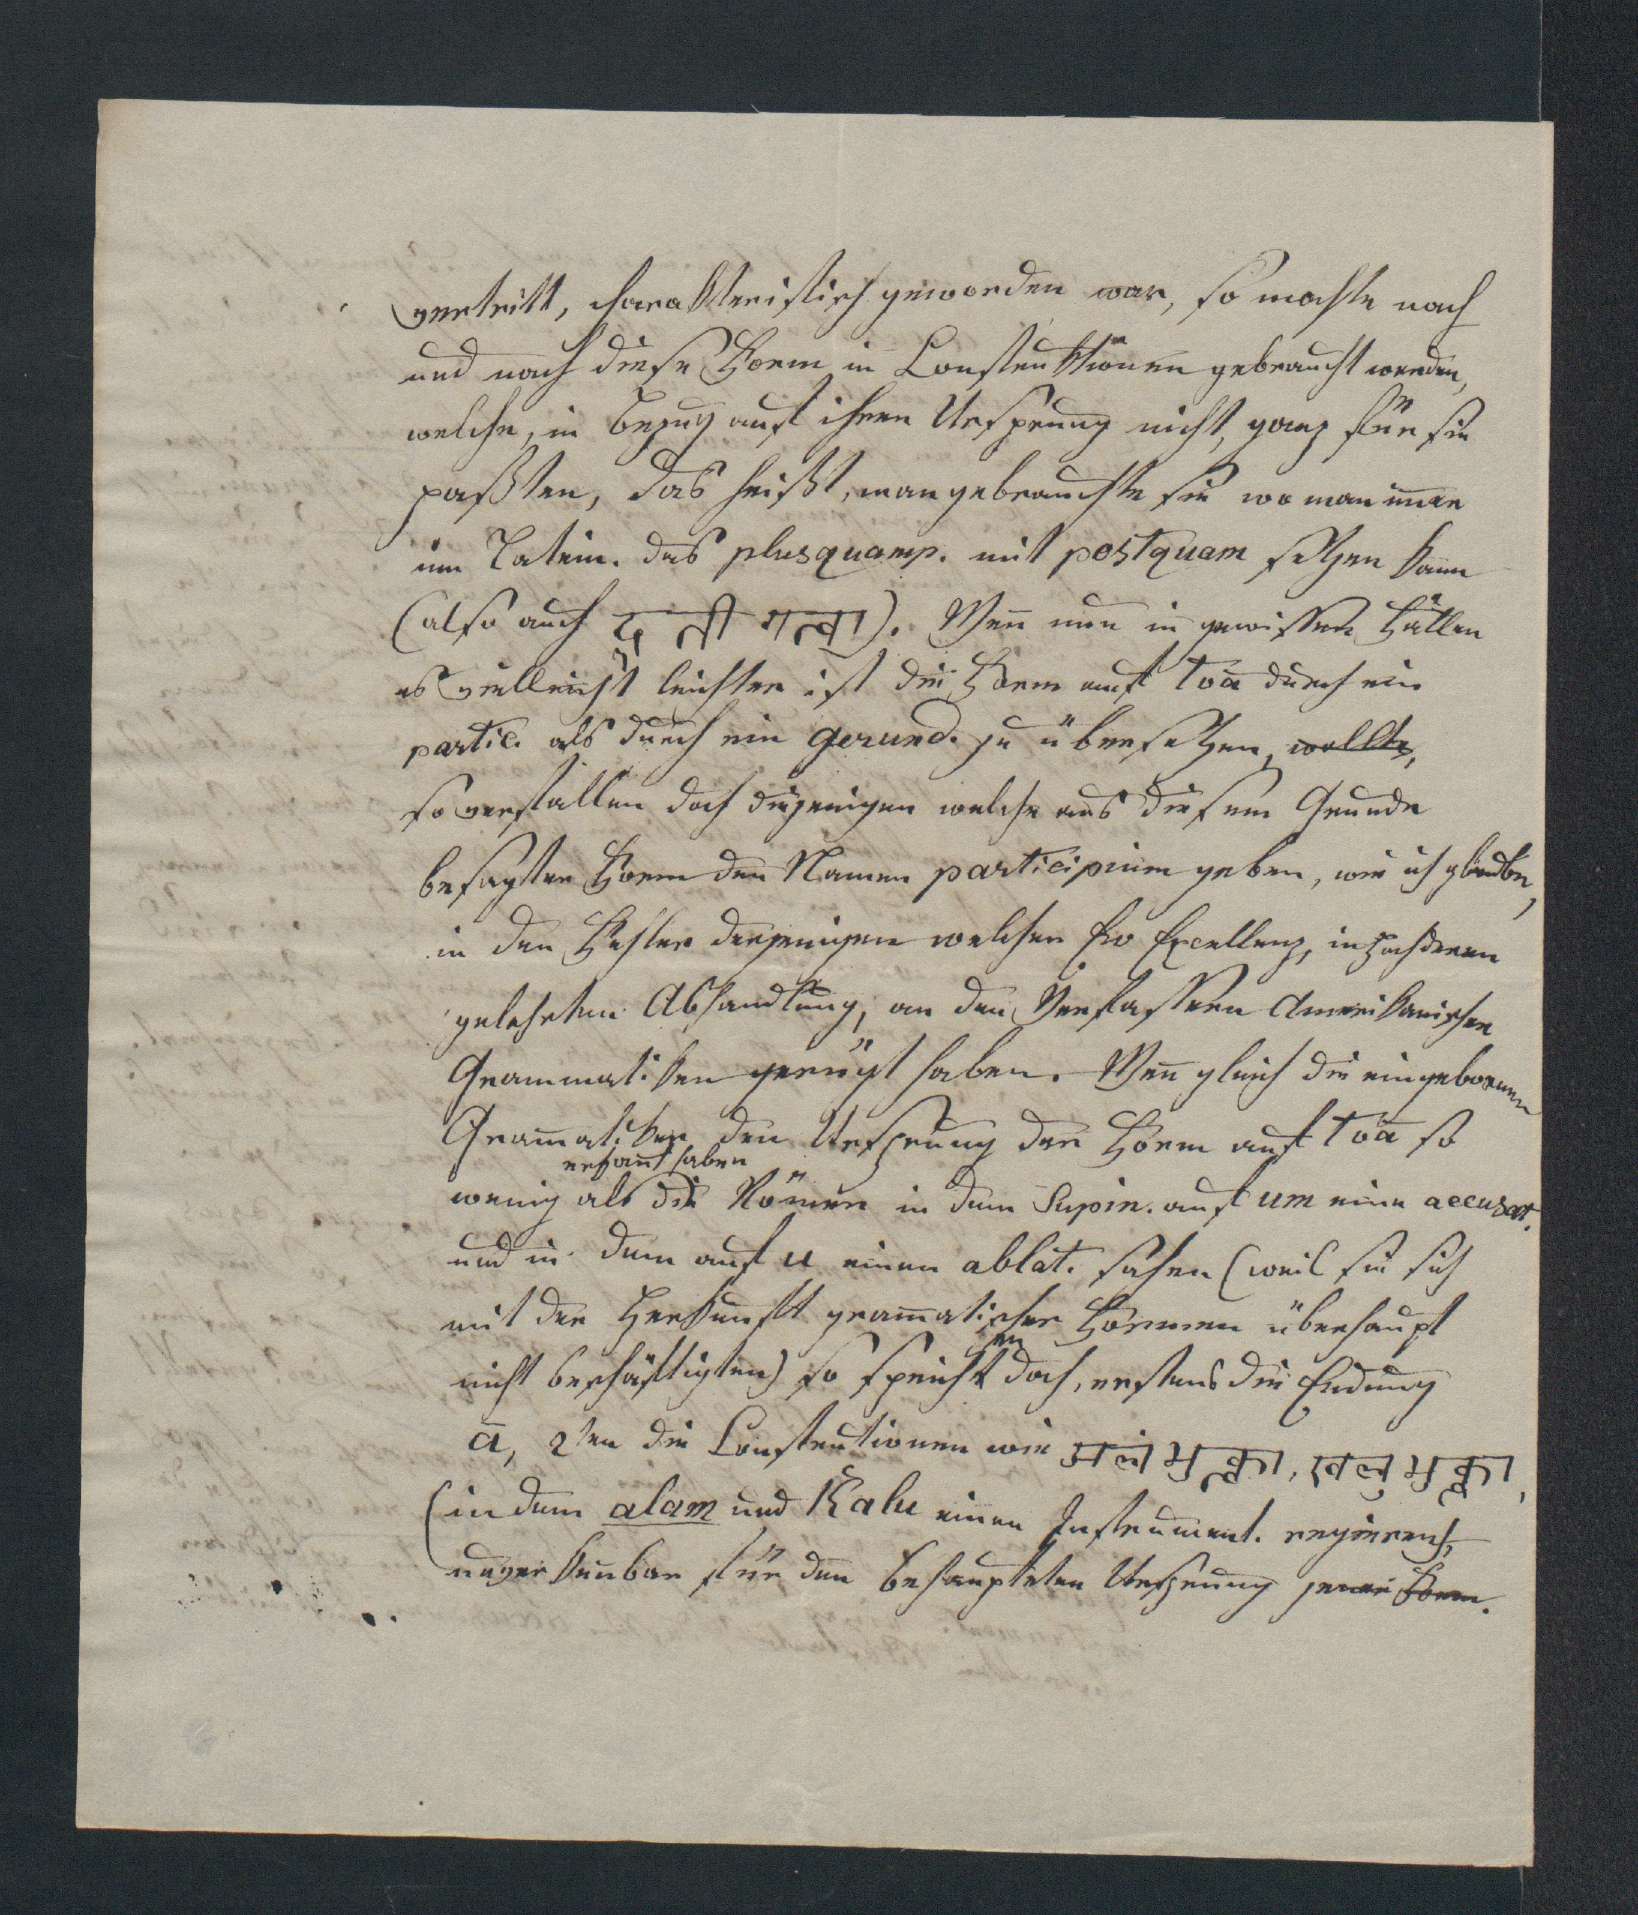 vertritt, charakteristisch geworden war, so mochte nach
und nach diese Form in Construktionen gebraucht werden,
welche, in Bezug auf ihren Ursprung nicht, ganz für sie
paßten, das heißt, man gebrauchte sie wo man im̄er
im Latein. das plusquamp. mit postquam setzen kann
(also auch गत्वा). Wen̄ nun in gewissen Fällen
es vielleicht leichter ist die Form auf tvā durch ein
partic. als durch ein gerund. zu übersetzen, wollte,
so verfallen doch diejenigen welche aus diesem Grunde
besagter Form den Namen participium geben, wie ich glaube,
in den Fehler derjenigen welchen Ew Excellenz, in Hochderen
gelehrten Abhandlung, an den Verfassern Amerikanischer
Grammatiken gerügt haben. Wen̄ gleich die eingebornen
Gram̄atiker den Ursprung der Form auf tvā so
erkan̄t haben
wenig als die Römer in dem Supin. auf um einen accusat.
und in dem auf u einen ablat. sahen (weil sie sich
mit der Herkunft gram̄atischer Formen überhaupt
nicht beschäftigten) so sprechen doch, erstens die Endung
ā, 2ten die Constructionen wie अलं भुक्त्वा, खलु भुक्त्वा,
(indem alam und Kalu einen Instrument. regieren),
unverken̄bar für den behaupteten Ursprung jener Form.